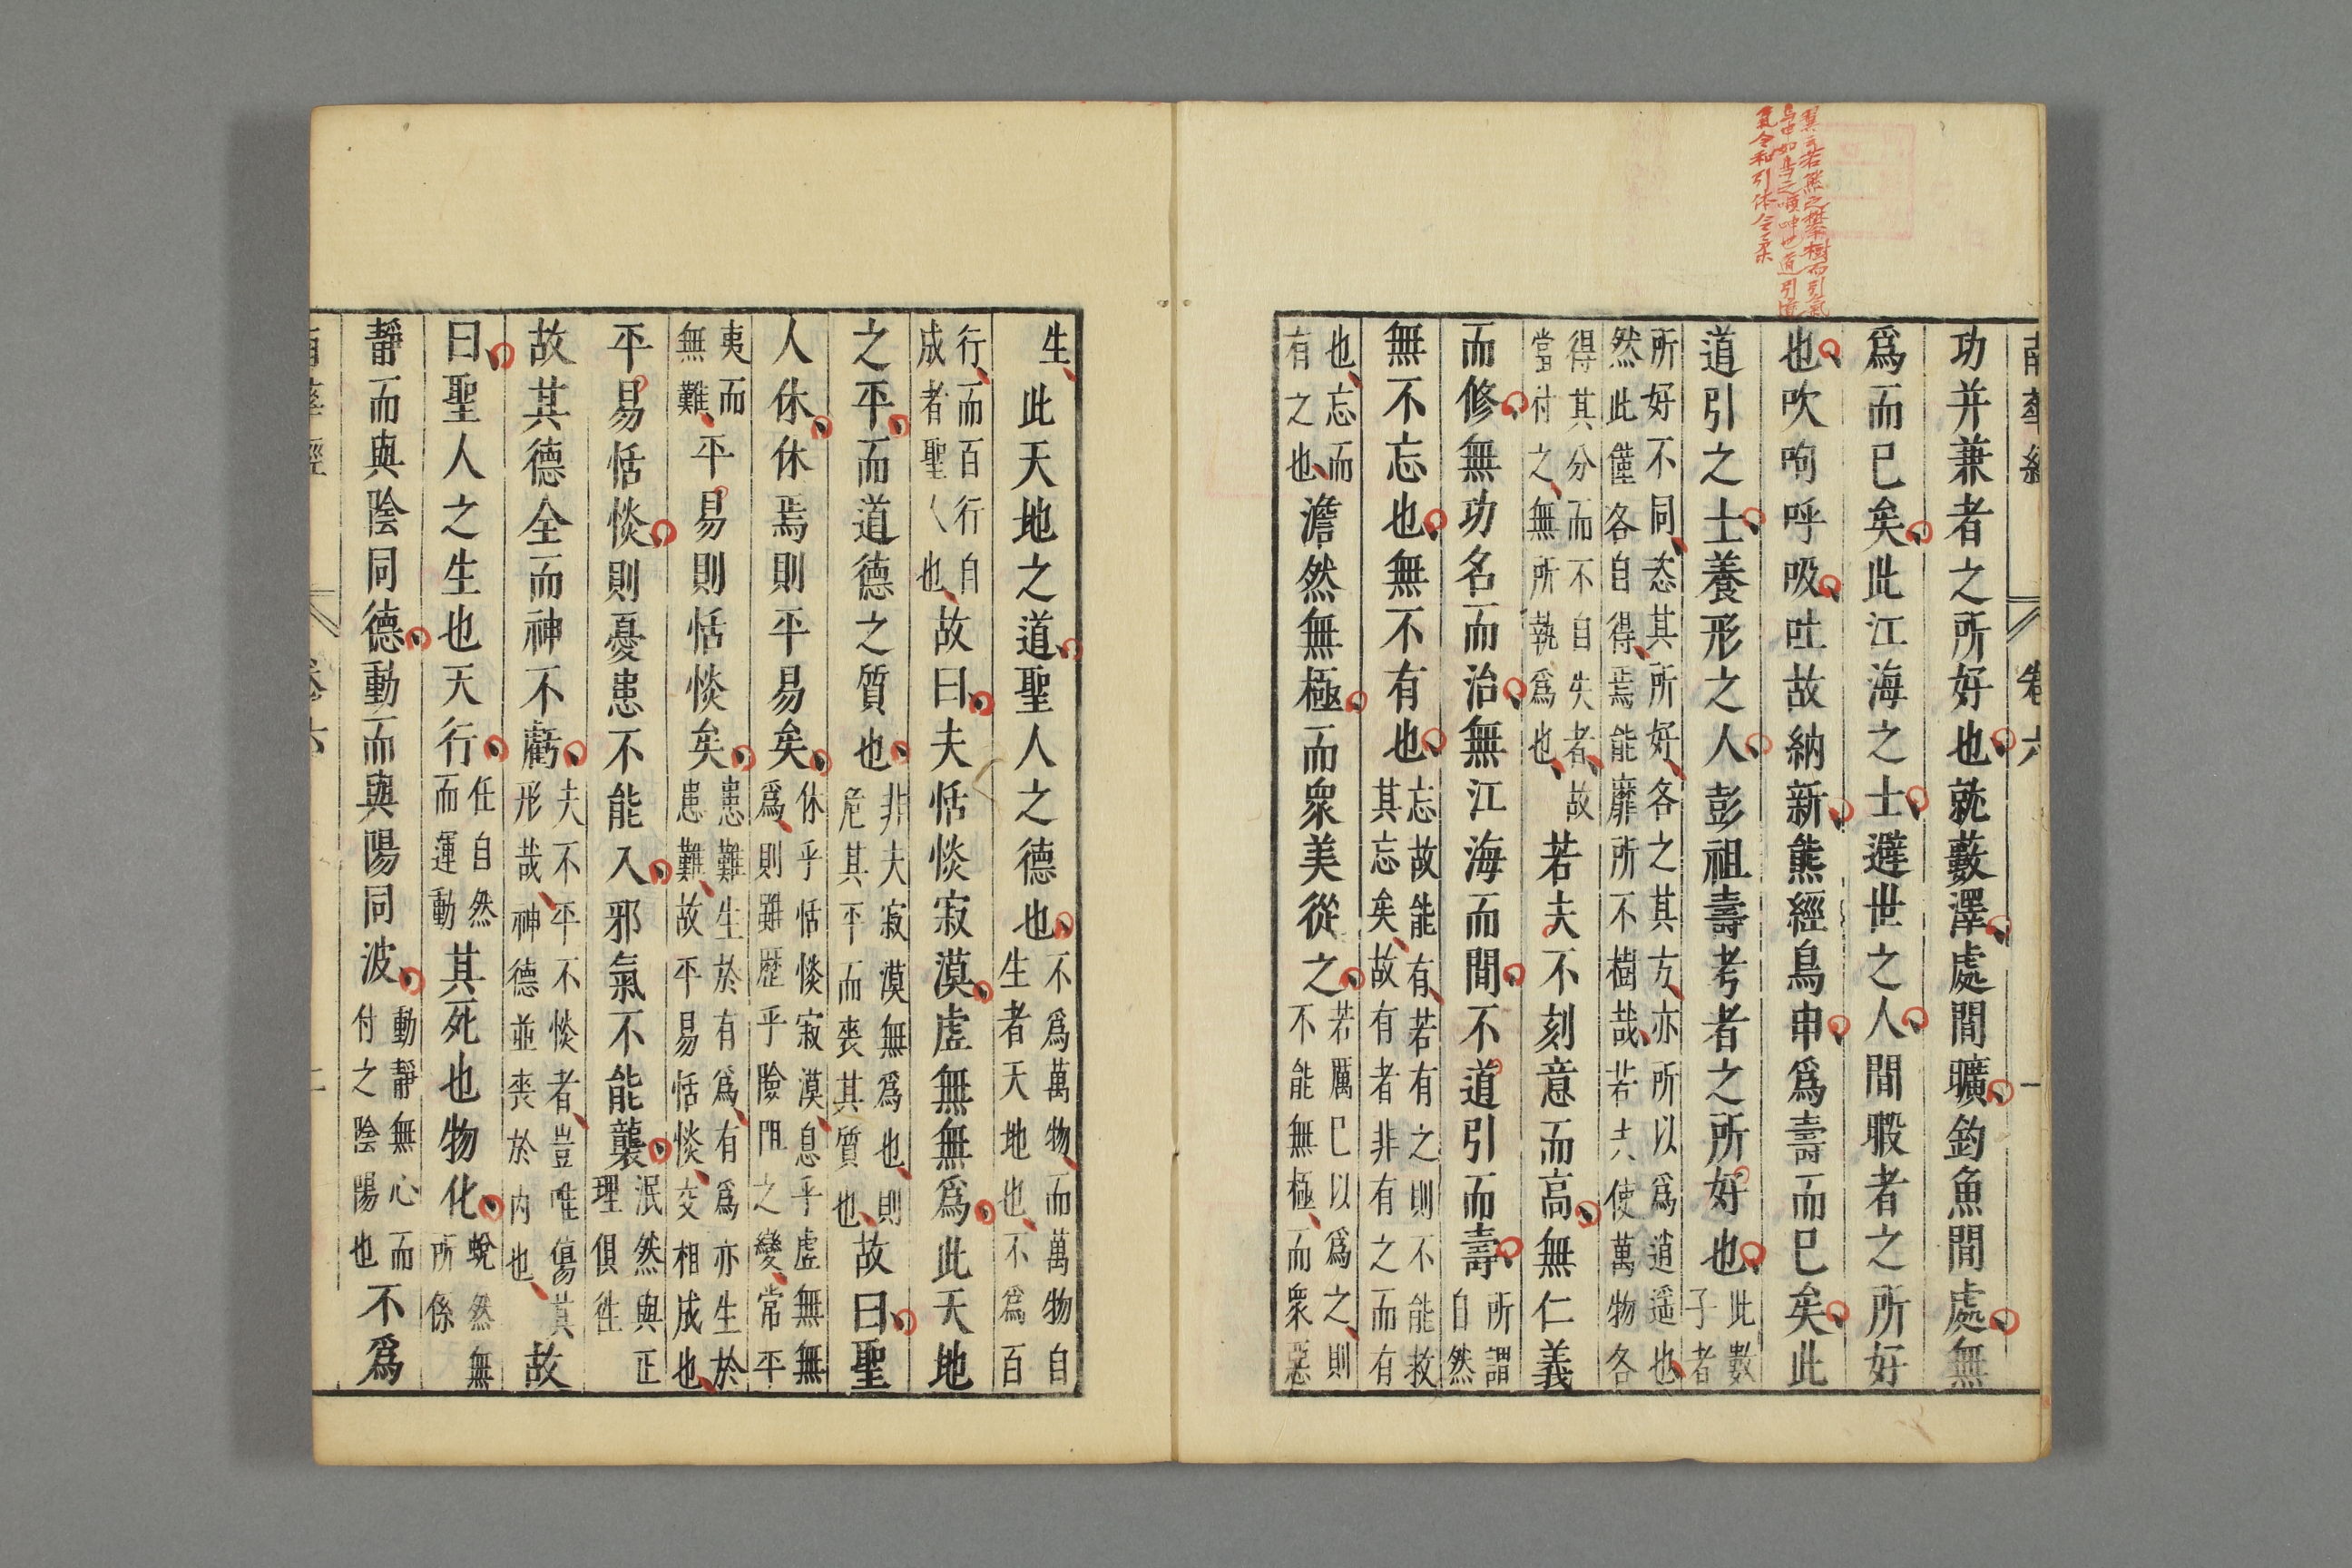 南華經 卷六 一
功并兼者之所好也就藪澤處閒曠釣魚閒處無
爲而已矣此江海之士避世之人閒暇者之所好
也吹呴呼吸吐故納新熊經鳥申爲壽而已矣此
道引之士養形之人彭祖壽考者之所好也此數
子者
所好不同恣其所好各之其方亦所以爲逍遥也
然此僅各自得焉能靡所不樹哉若夫使萬物各
得其分而不自失者故
當付之無所執爲也若夫不刻意而高無仁義
而修無功名而治無江海而閒不道引而壽所謂
自然
無不忘也無不有也忘故能有若有之則不能救
其忘矣故有者非有之而有
也忘而
有之也澹然無極而衆美從之若厲已以爲之則
不能無極而衆惡
生此天地之道聖人之德也不爲萬物而萬物自
生者天地也不爲百
行而百行自
成者聖人也故曰夫恬惔寂漠虛無無爲此天地
之平而道德之質也非夫寂漠無爲也則
危其平而喪其質也故曰聖
人休休焉則平易矣休乎恬惔寂漠息乎虛無無
爲則雖歷乎險阻之變常平
夷而
無難平易則恬惔矣患難生於有爲有爲亦生於
患難故平易恬惔交相成也
平易恬惔則憂患不能入邪氣不能襲泯然與正
理俱往
故其德全而神不虧夫不平不惔者豈唯傷其
形哉神德並喪於内也故
曰聖人之生也天行任自然
而運動其死也物化蛻然無
所係
靜而與陰同德動而與陽同波動靜無心而
付之陰陽也不爲